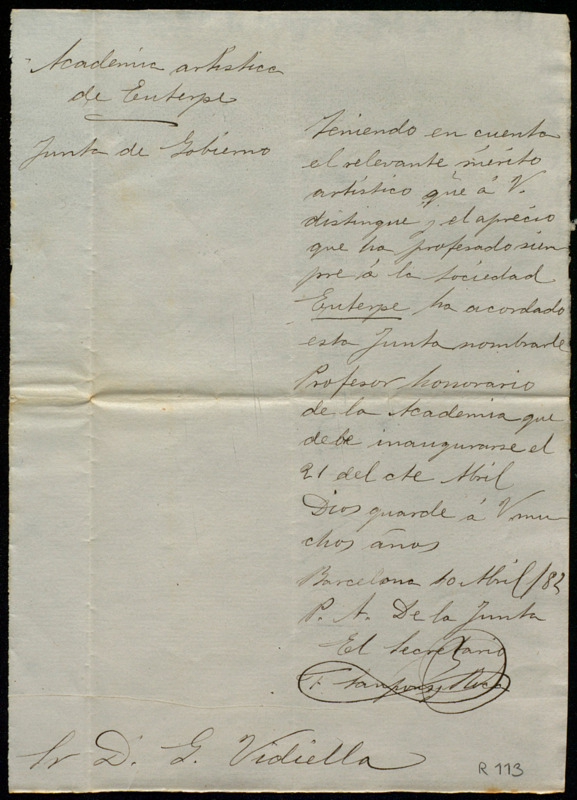 Academia artistica
de Euterpe
Junta de Gobierno
Teniendo en cuenta
el relevante mérito
artístico que á V.
distingue y el aprecio
que ha profesado siem
pre á la sociedad
Euterpe ha acordado
esta Junta nombrarle
Profesor honorario
de la Academia que
debe inaugurarse el
21 del cte Abril
Dios guarde á V mu
chos años
Barcelona 10 Abril /83
P. A. De la Junta
El Secretario
Sr D. G. Vidiella
R 113